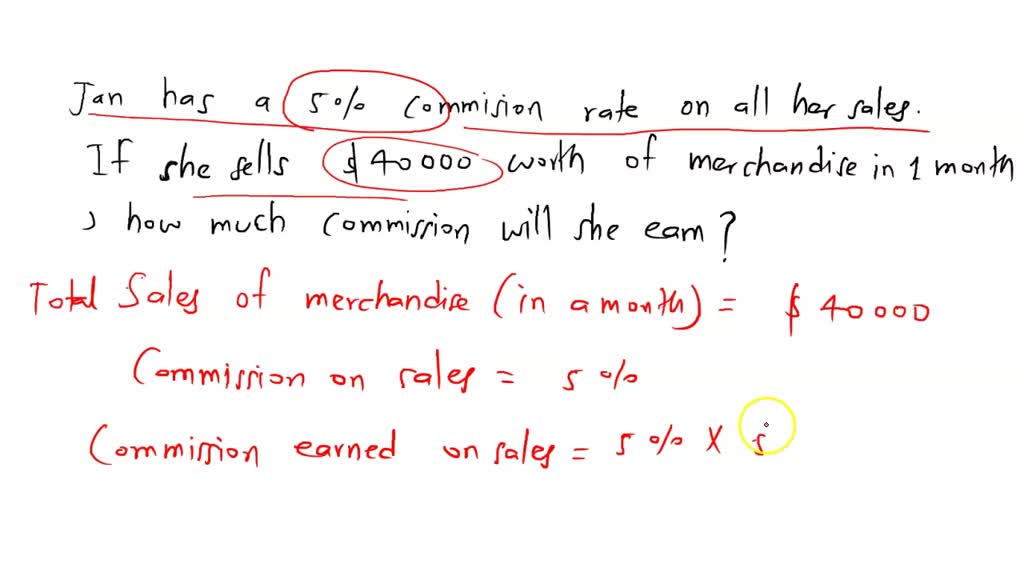 Jan has a 5% commision rate on all her sales.
If she sells $40000 worth of merchandise in 1 month
, how much commission will she earn?
Total Sales of merchandise (in a month) = $40000
Commission on sales = 5%
Commission earned on sales = 5% X s